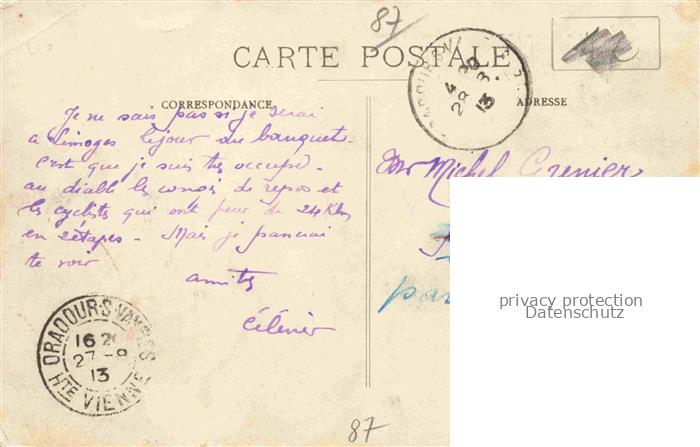 87
CARTE POSTALE
CORRESPONDANCE
ADRESSE
Je ne sais pas si je serai
a Limoges le jour du banquet.
C'est que je suis très occupé.
au diable le de repos et
les cyclistes qui ont peur de 24 Klm
en 2 étapes - Mais je passerai
te voir
amitiés
Michel Grenier
par
ORADOUR-S-VAYRES
16
27-8
13
HTE VIENNE
4
28
13
87
privacy protection
Datenschutz